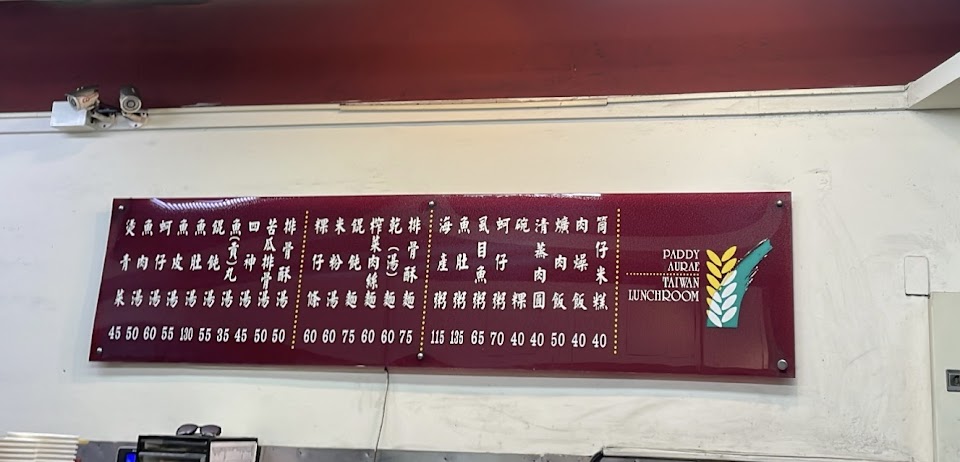 PADDY
AURAE
TAIWAN
LUNCHROOM
筒仔米糕 40
肉燥飯 40
爌肉飯 50
清蒸肉圓 40
碗粿 40
蚵仔粥 70
虱目魚粥 65
魚肚粥 135
海產粥 115
排骨酥麵 75
乾(湯)麵 60
榨菜肉絲麵 60
餛飩麵 75
米粉湯 60
粿仔條 60
排骨酥湯 50
苦瓜排骨湯 50
四神湯 45
魚(貢)丸湯 35
餛飩湯 55
魚肚湯 130
魚皮湯 55
蚵仔湯 60
魚肉湯 50
燙青菜 45